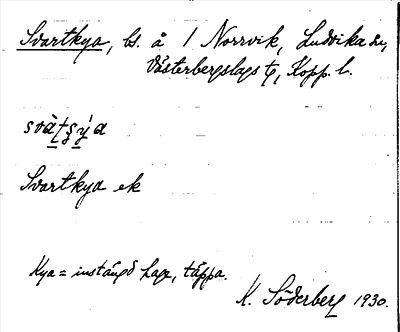 Svartkya, bs. å 1 Norrvik, Ludvika sn,
Västerbergslags tg, Kopp. l.
svàʈʂýa
Svartkya ek
Kya = instängd hage, täppa.
K. Söderberg 1930.